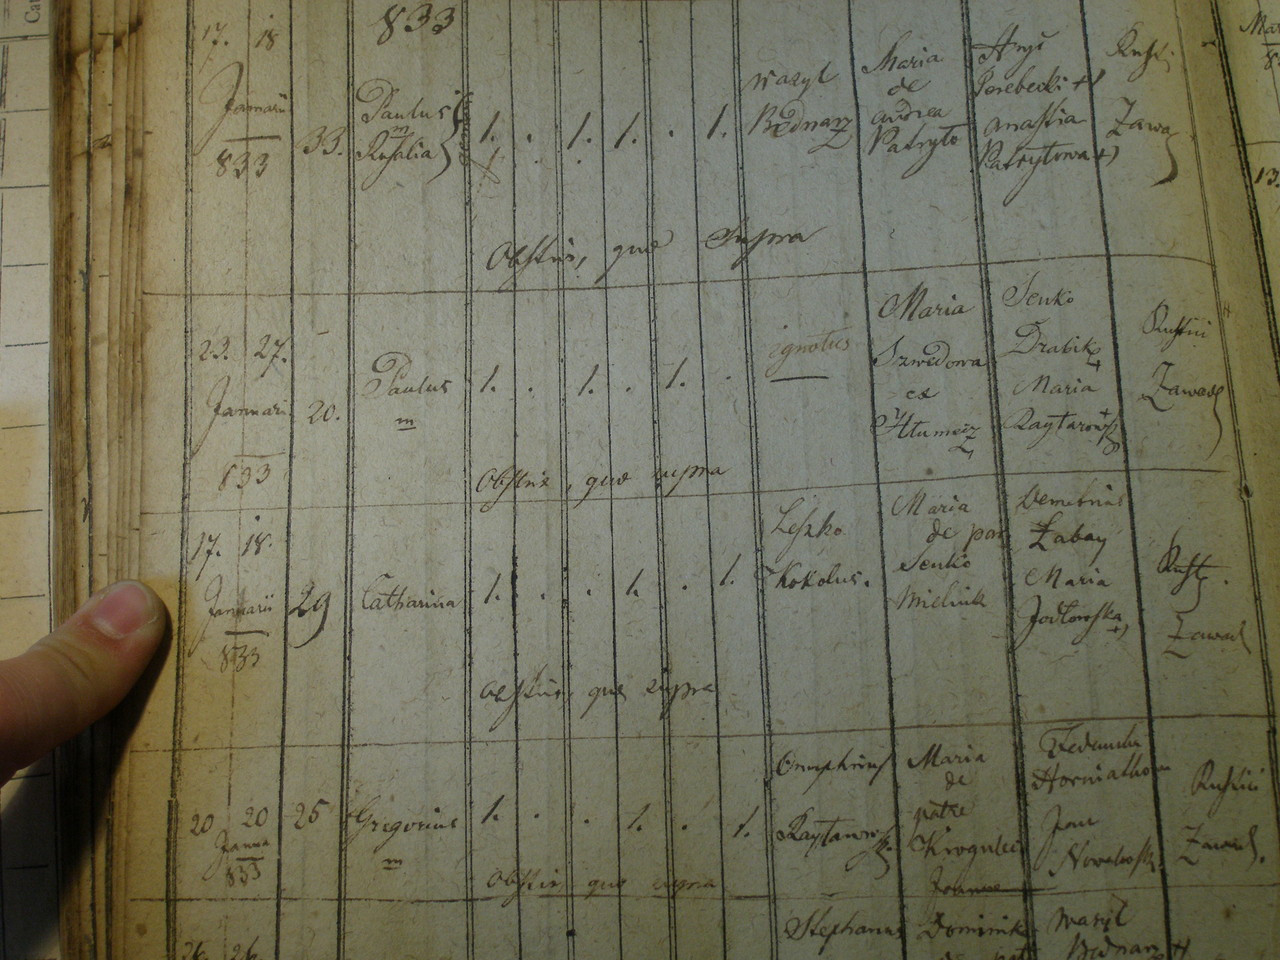 833
17. 18
Januarii
833
33.
Paulus
m
Rosalia
1. . 1. 1. . 1.
Wazyl
Bednarz
Maria
de
andrea
Patryto
Hryć
Porebecki +)
Anastia
Patrytowa +)
Rusti
Zawad
Obstrix, quae Supra
23. 27.
Januarii
833
20.
Paulus
m
1. . 1. . 1. .
ignotus
Maria
Szwedowa
ex
Senko
Drabik
+
Maria
Rustici
Zawad
Obstrix, quae supra
17. 18.
Januarii
833
29
Catharina
1. . . 1. . 1.
Leszko
Kokolus.
Maria
de patre
Senko
Mielnik
Demetrius
Łabay
Maria
Jodłowska
+)
Rusti.
Zawad
Obstrix, quae supra
20 20
Janua
833
25
Gregorius
m
1. . . 1. . 1.
Onuphrius
Maria
de
patre
Krogulec
Joanne
Horniatko
Jan
Rustici
Zawad.
Obstrix, quae supra
26. 26.
Stephanus
Dominika
Wazyl
Bednarz +)